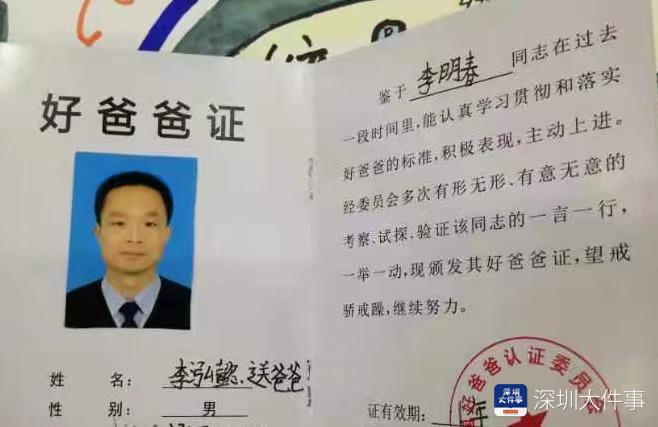 好爸爸证
姓 名：李泓懿、送爸爸
性 别：男
鉴于 李明春 同志在过去
一段时间里，能认真学习贯彻和落实
好爸爸的标准，积极表现，主动上进。
经委员会多次有形无形、有意无意的
考察、试探、验证该同志的一言一行，
一举一动，现颁发其好爸爸证，望戒
骄戒躁，继续努力。
好爸爸认证委员
证有效期：
深圳
大件事
深圳大件事